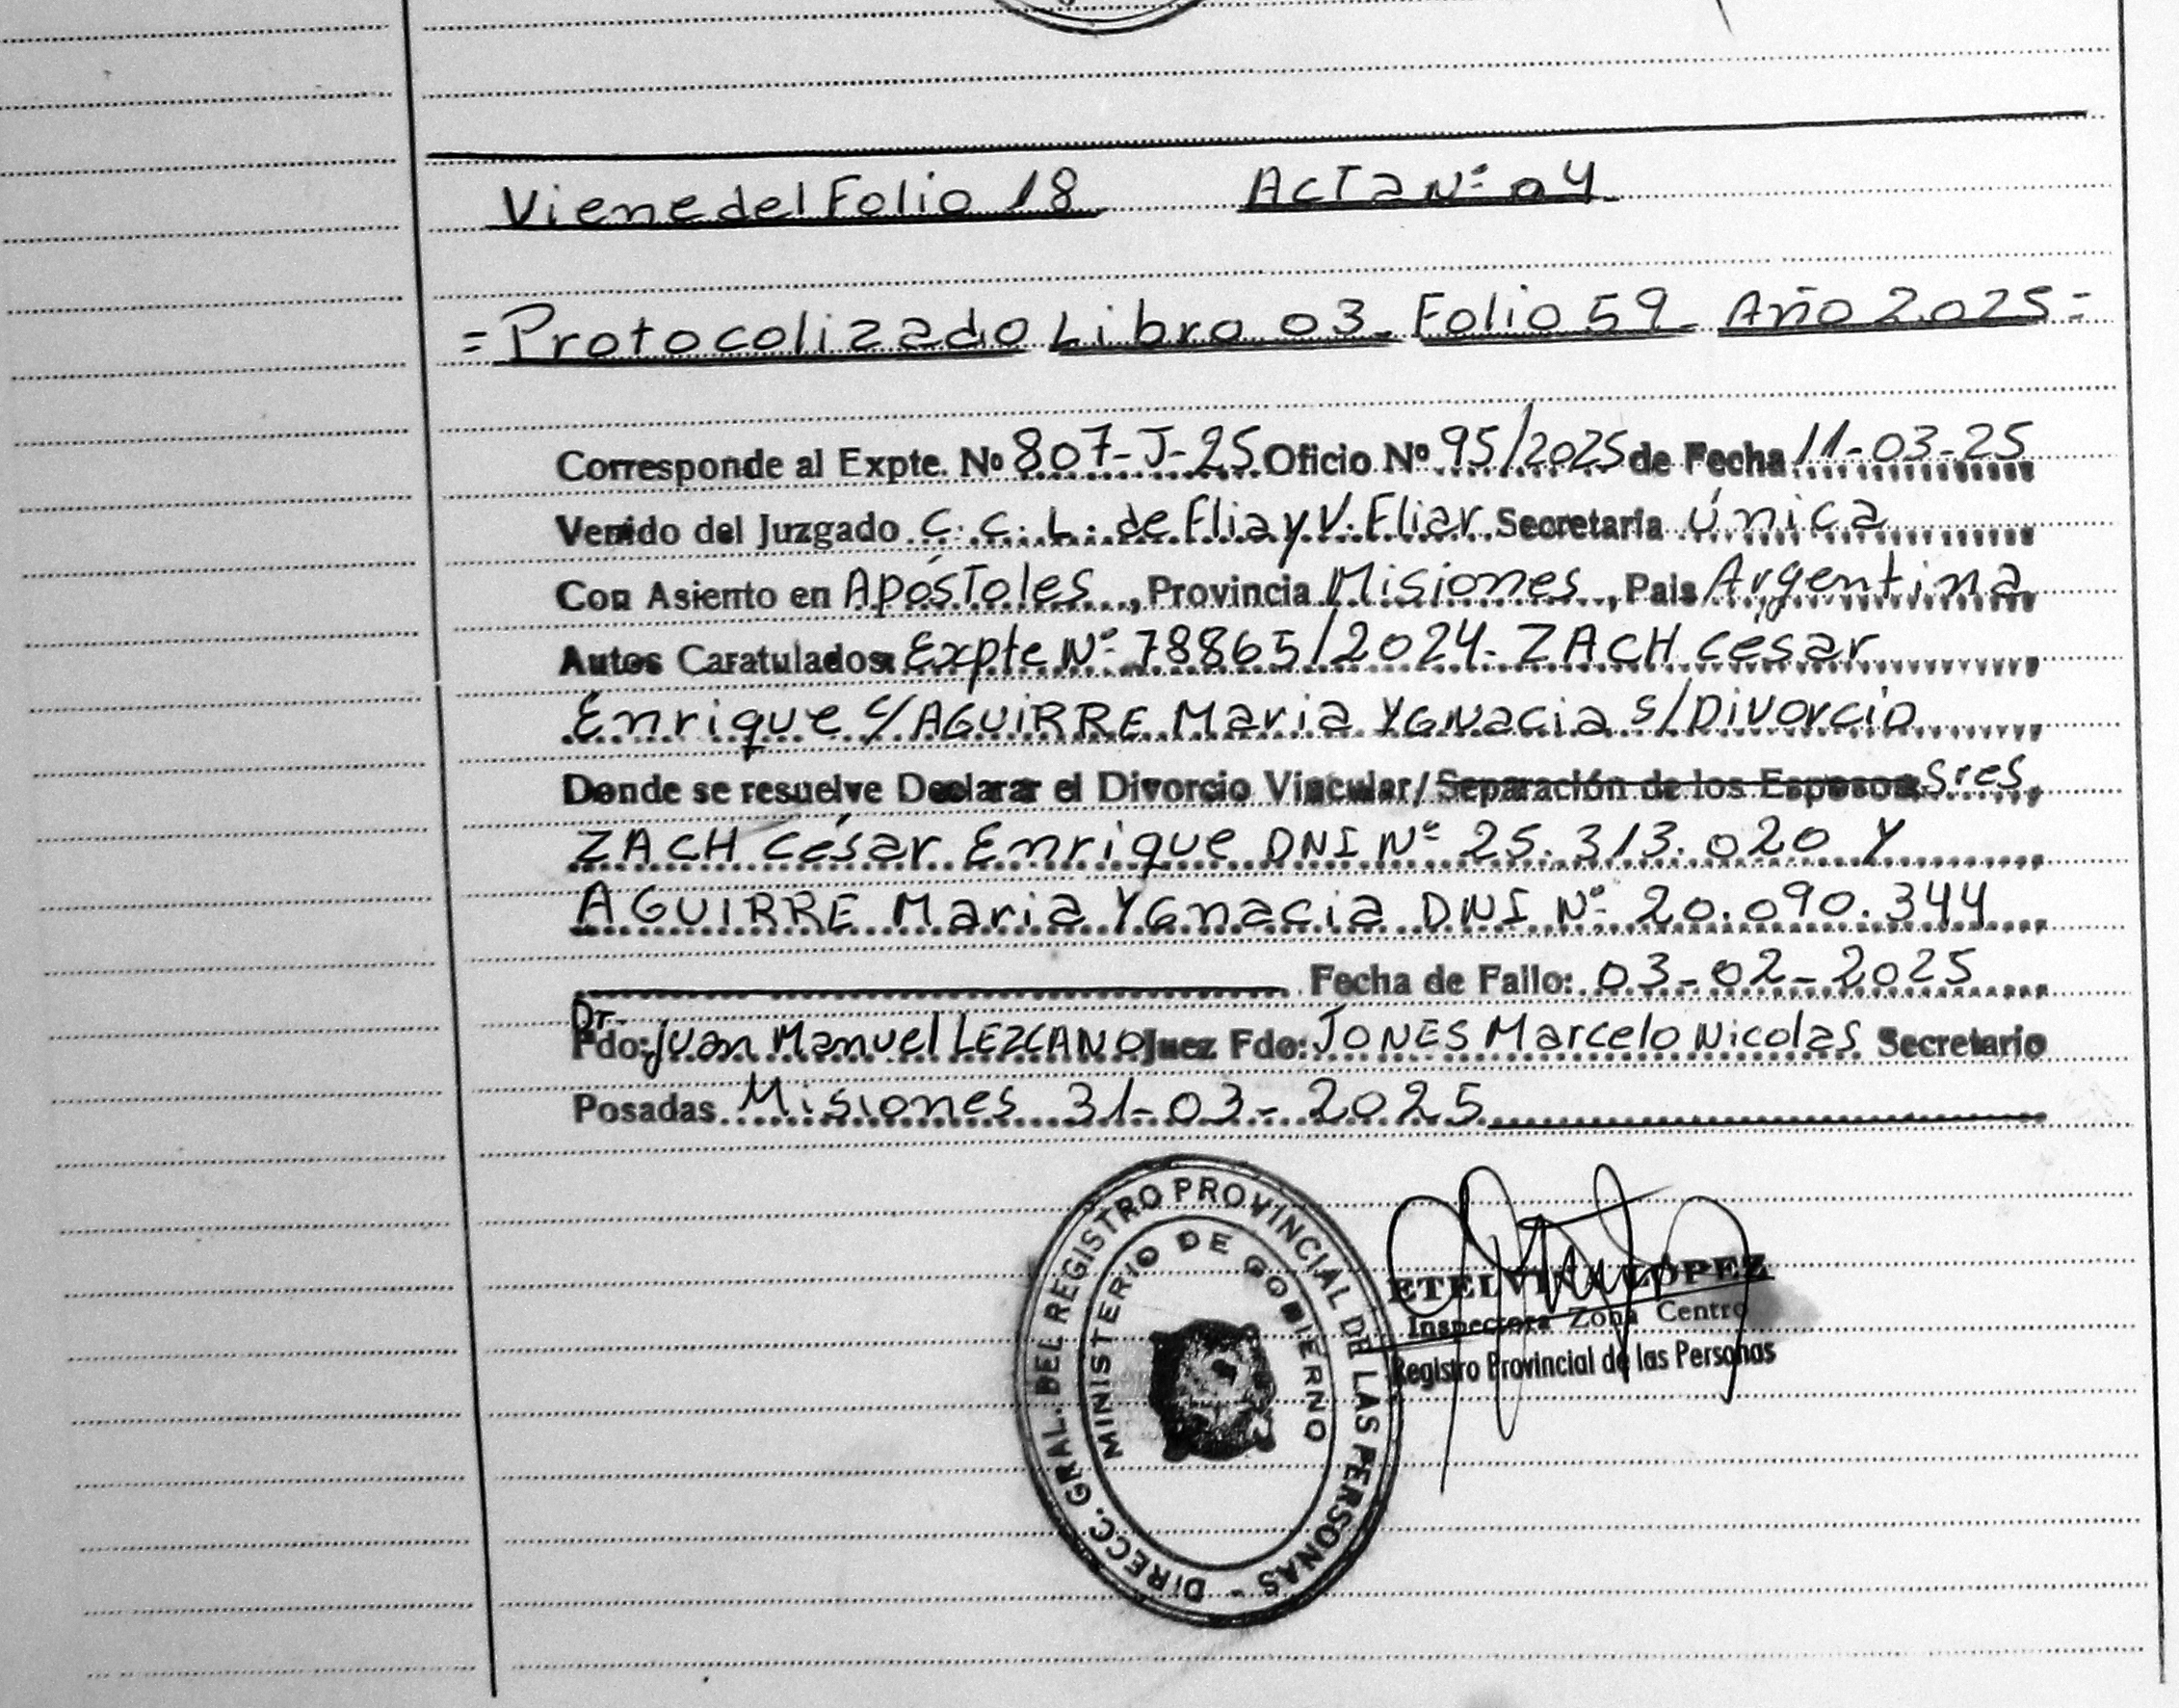 Viene del Folio 18 Acta Nº 04
= Protocolizado Libro 03 - Folio 59 - Año 2025 =
Corresponde al Expte. Nº 807-J-25 Oficio Nº 95/2025 de Fecha 11-03-25
Venido del Juzgado C. C. L. de Flia y V. Fliar Secretaría única
Con Asiento en Apóstoles, Provincia Misiones, Pais Argentina
Autos Caratulados: Expte Nº 78865/2024- ZACH césar
Enrique c/AGUIRRE Maria YGNacia s/Divorcio
Donde se resuelve Declarar el Divorcio Vincular/Separación de los Esposos Sres
ZACH césar Enrique DNI Nº 25.313.020 Y
AGUIRRE Maria YGnacia DNI Nº 20.090.344
Fecha de Fallo: 03-02-2025
Dr.
Fdo: Juan Manuel LEZCANO Juez Fdo: JONES Marcelo Nicolas Secretario
Posadas Misiones 31-03-2025
DIRECC. GRAL. DEL REGISTRO PROVINCIAL DE LAS PERSONAS -
MINISTERIO DE GOBIERNO
ETELVINA LÓPEZ
Inspectora Zona Centro
Registro Provincial de las Personas